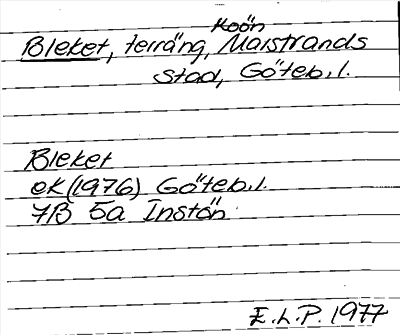 Koön
Bleket, terräng, Marstrands
stad, Göteb.l.
Bleket
ek (1976) Göteb.l.
7B 5a Instön
E.L.P. 1977